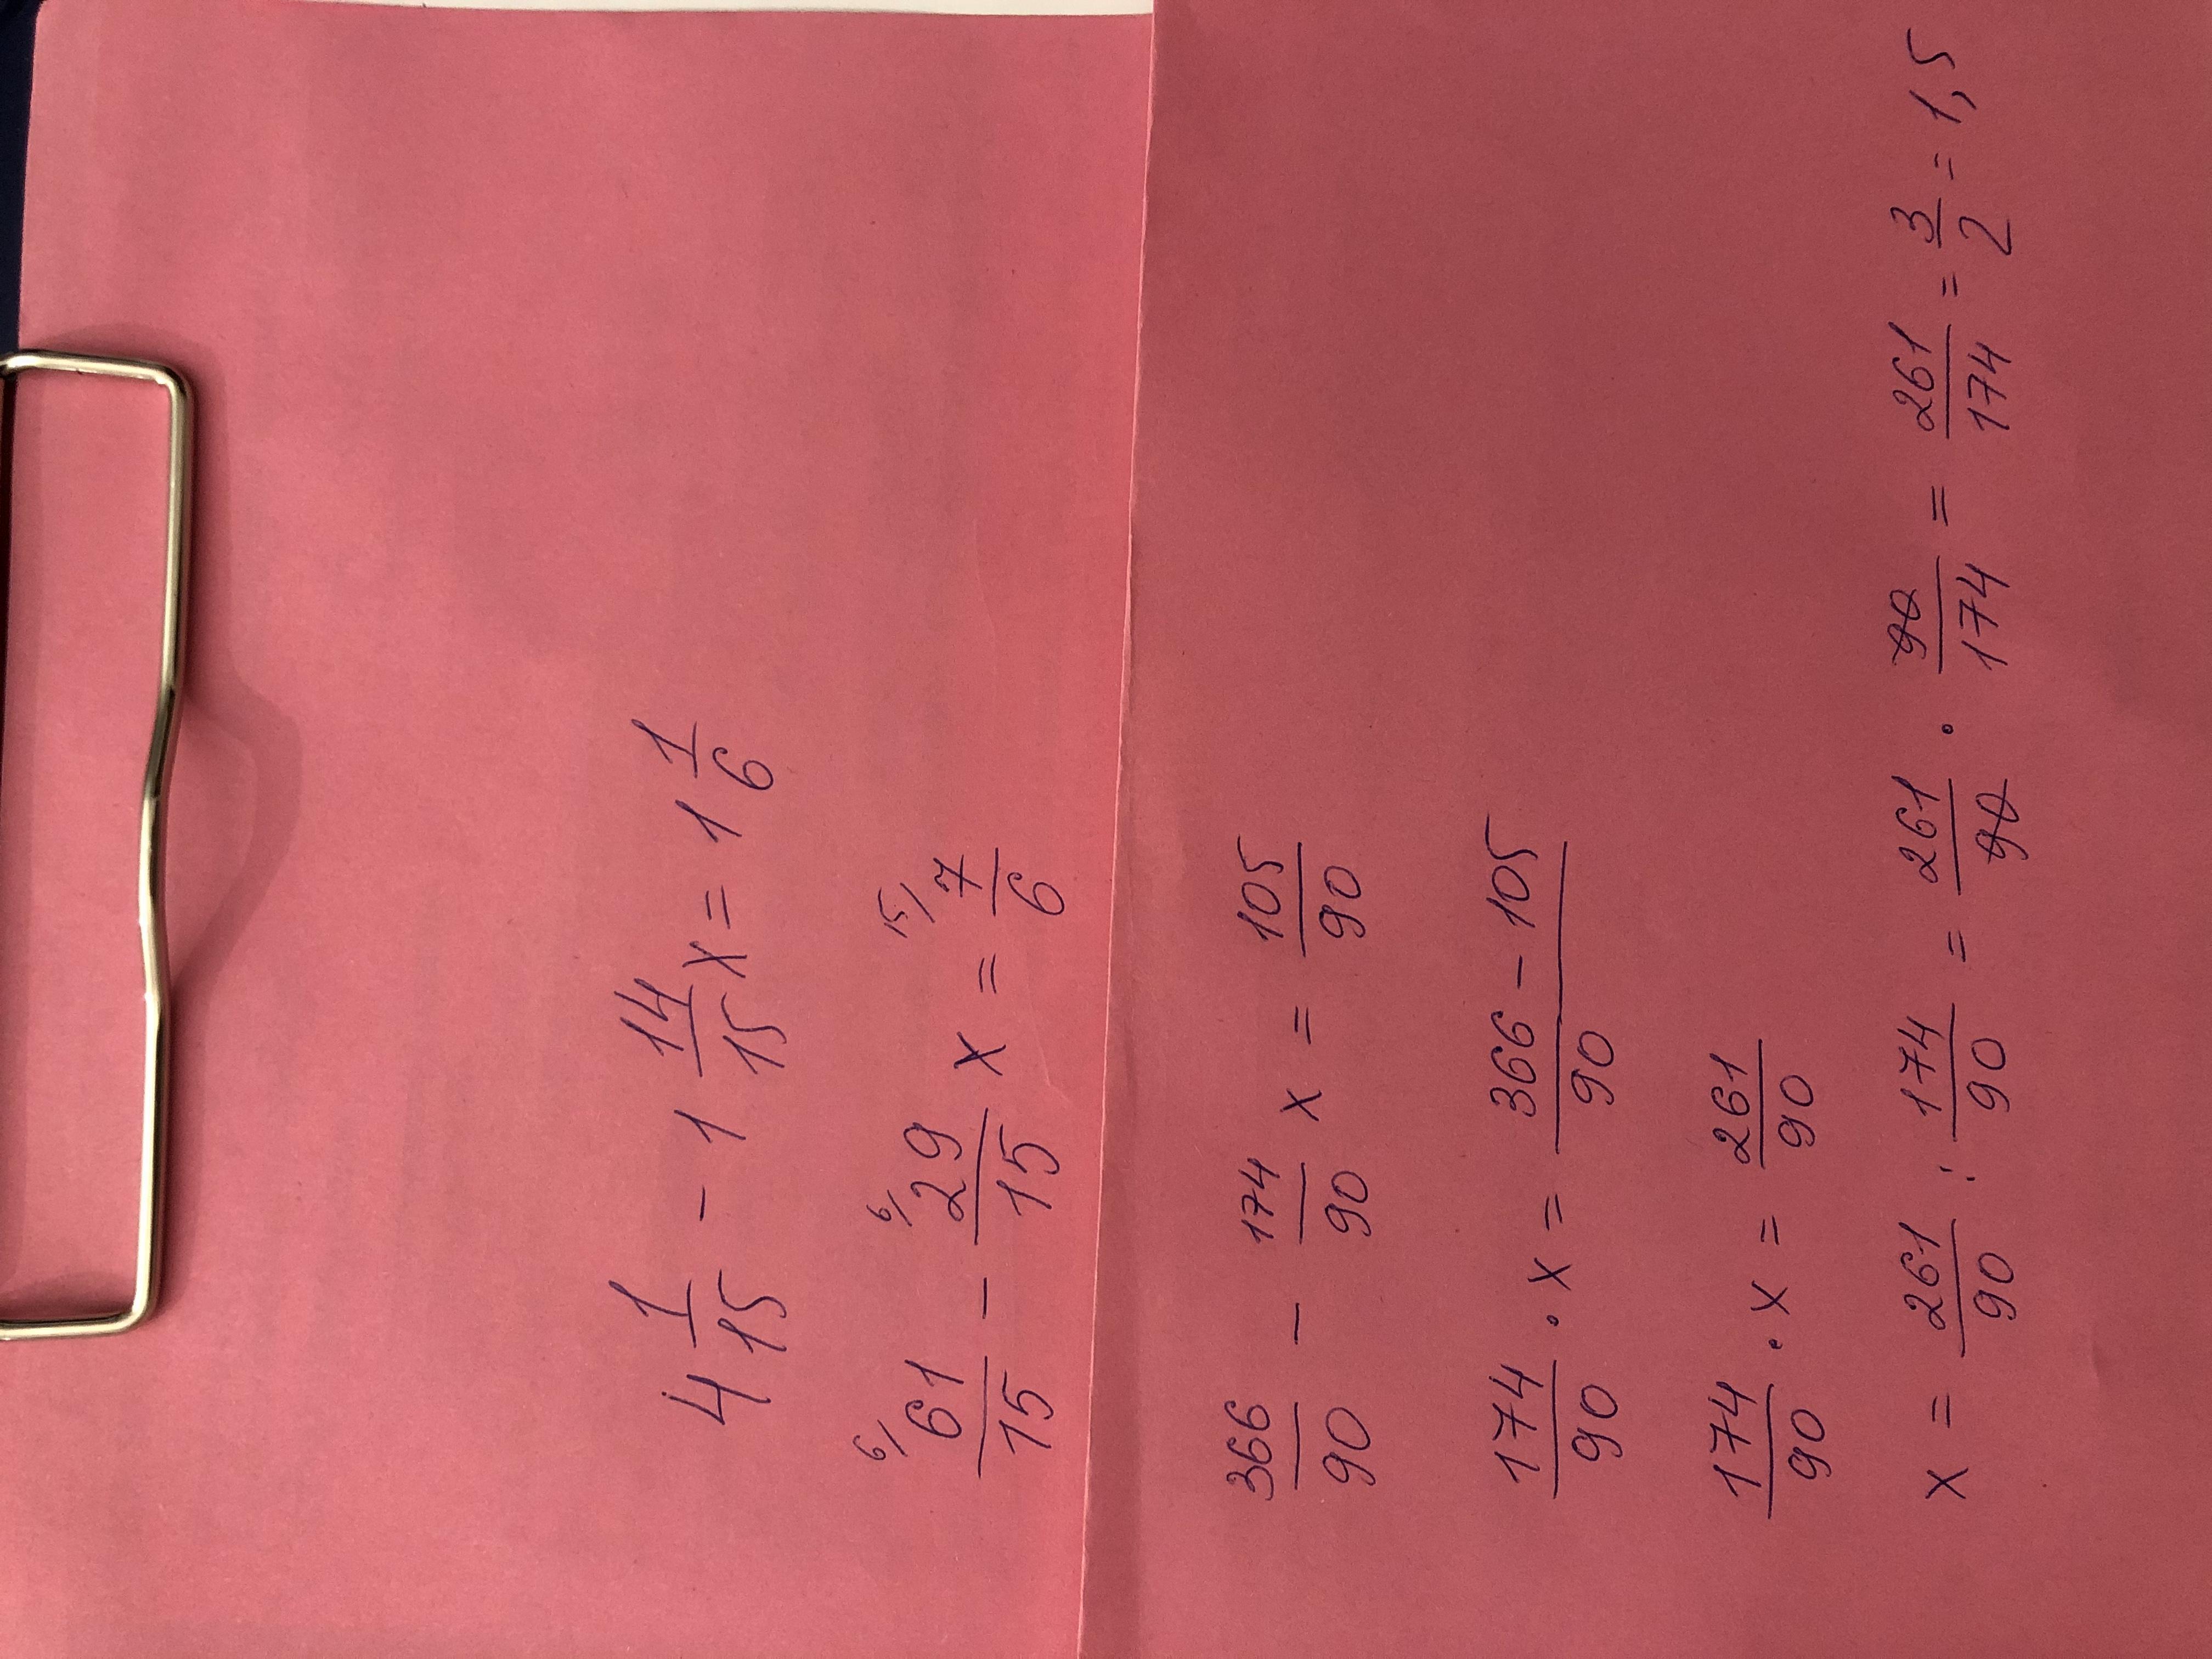 4 1/15 - 1 14/15 x = 1 1/6
6/ 61/15 - 6/ 29/15 x = 15/ 7/6
366/90 - 174/90 x = 105/90
174/90 · x = (366 - 105)/90
174/90 · x = 261/90
x = 261/90 : 174/90 = 261/90 · 90/174 = 261/174 = 3/2 = 1,5